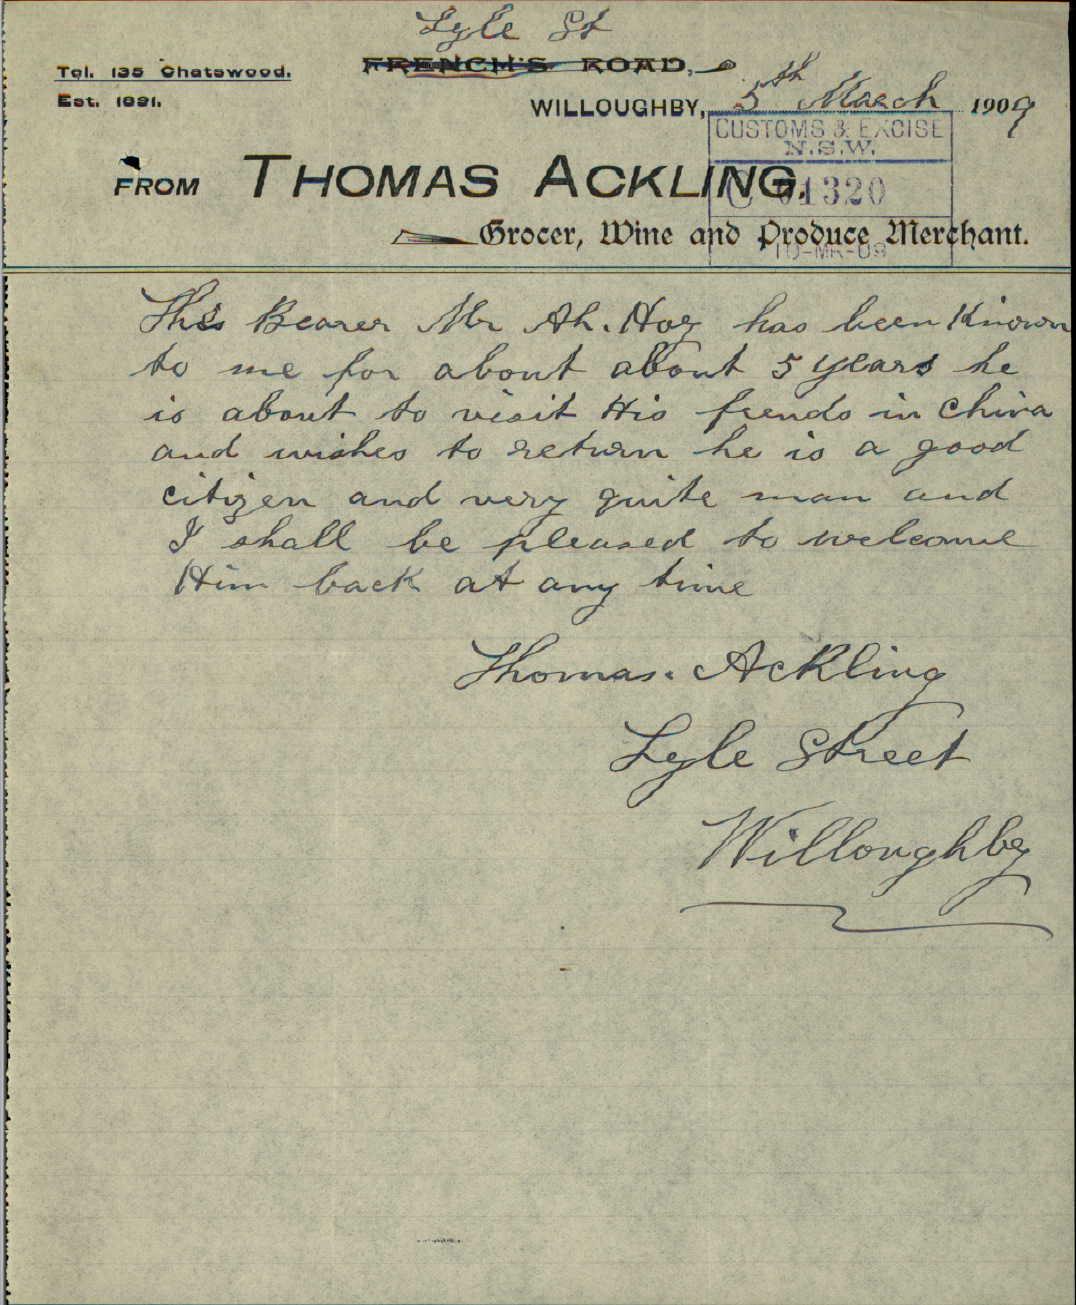 Lyle St
Tel. 135 Chatswood. FRENCH'S ROAD,
Est. 1891. WILLOUGHBY, 5th March 1909
CUSTOMS & EXCISE
N.S.W.
FROM THOMAS ACKLING,
C 01320
Grocer, Wine and Produce Merchant.
10-MR-09
This Bearer Mr Ah. Hoy has been Known
to me for about about 5 years he
is about to visit His friends in China
and wishes to return he is a good
citizen and very quite man and
I shall be pleased to welcome
Him back at any time
Thomas. Ackling
Lyle Street
Willoughby